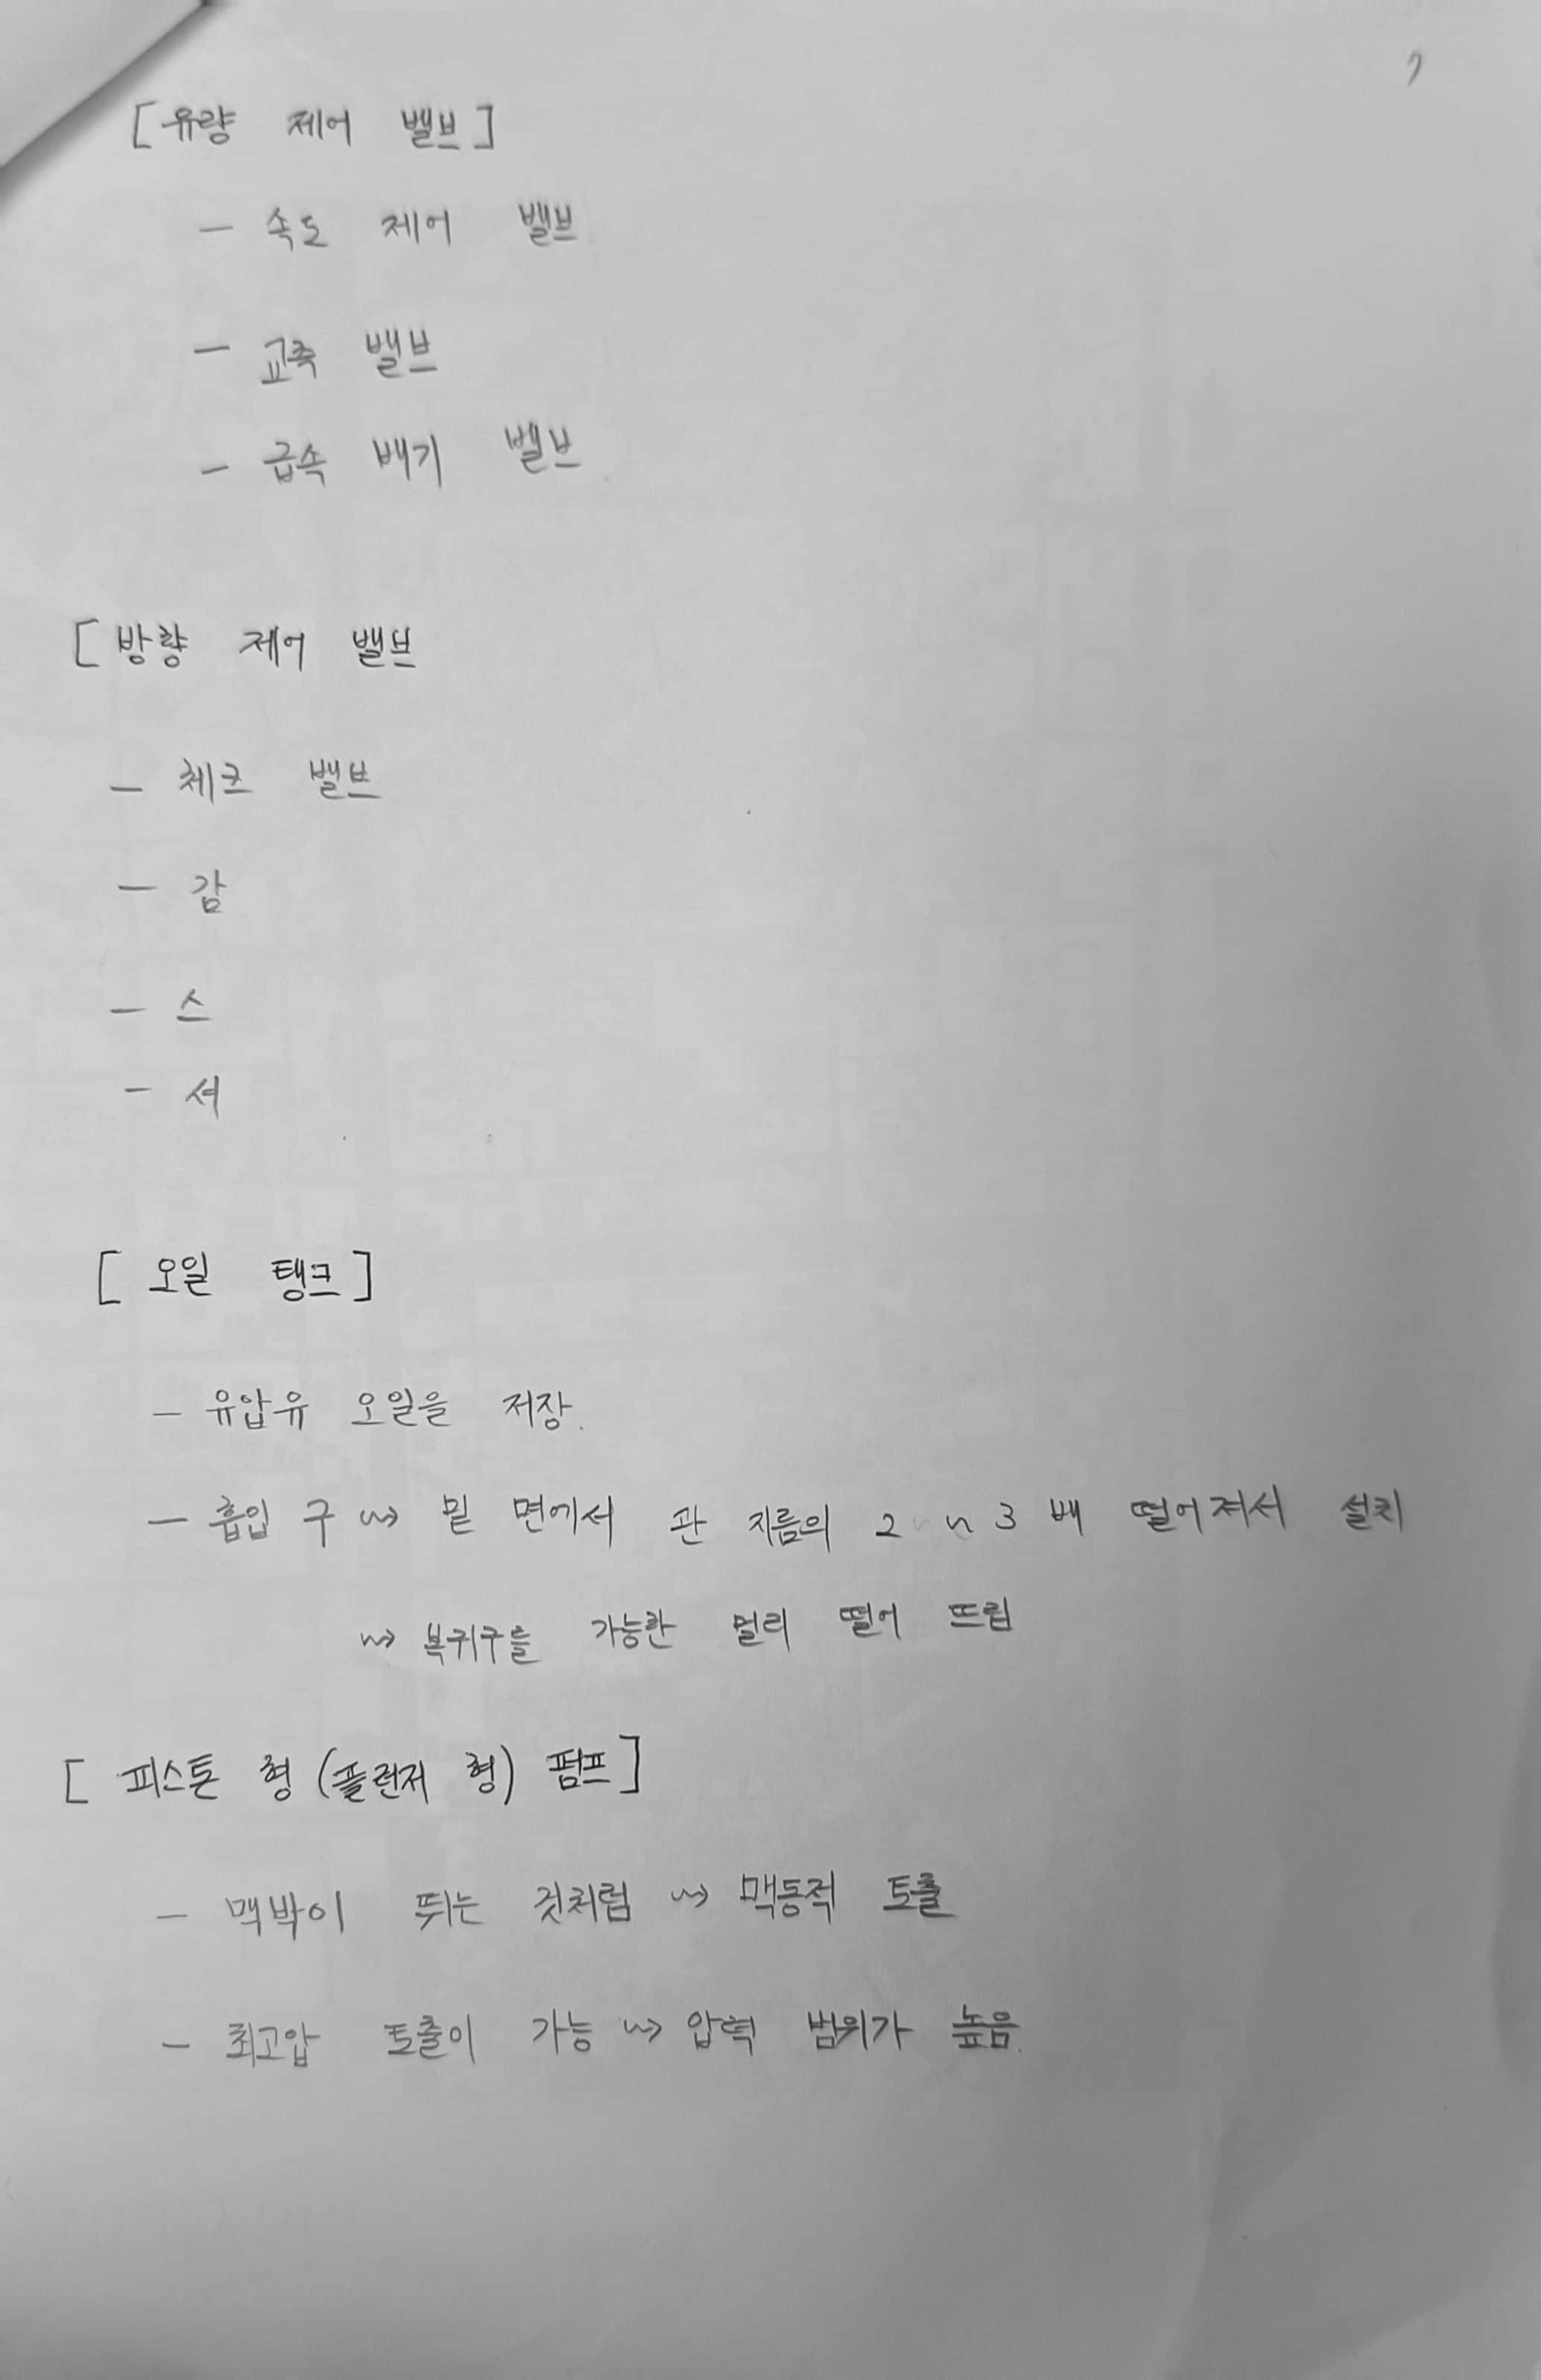 [유량 제어 밸브]
- 속도 제어 밸브
- 교축 밸브
- 급속 배기 밸브
[방향 제어 밸브
- 체크 밸브
- 감
- 스
- 셔
[오일 탱크]
- 유압유 오일을 저장.
- 흡입구 ⇝ 밑 면에서 관 지름의 2 ~ 3 배 떨어져서 설치
⇝ 복귀구를 가능한 멀리 떨어 뜨림
[피스톤 형 (플런저 형) 펌프]
- 맥박이 뛰는 것처럼 ⇝ 맥동적 토출
- 최고압 토출이 가능 ⇝ 압력 범위가 높음.